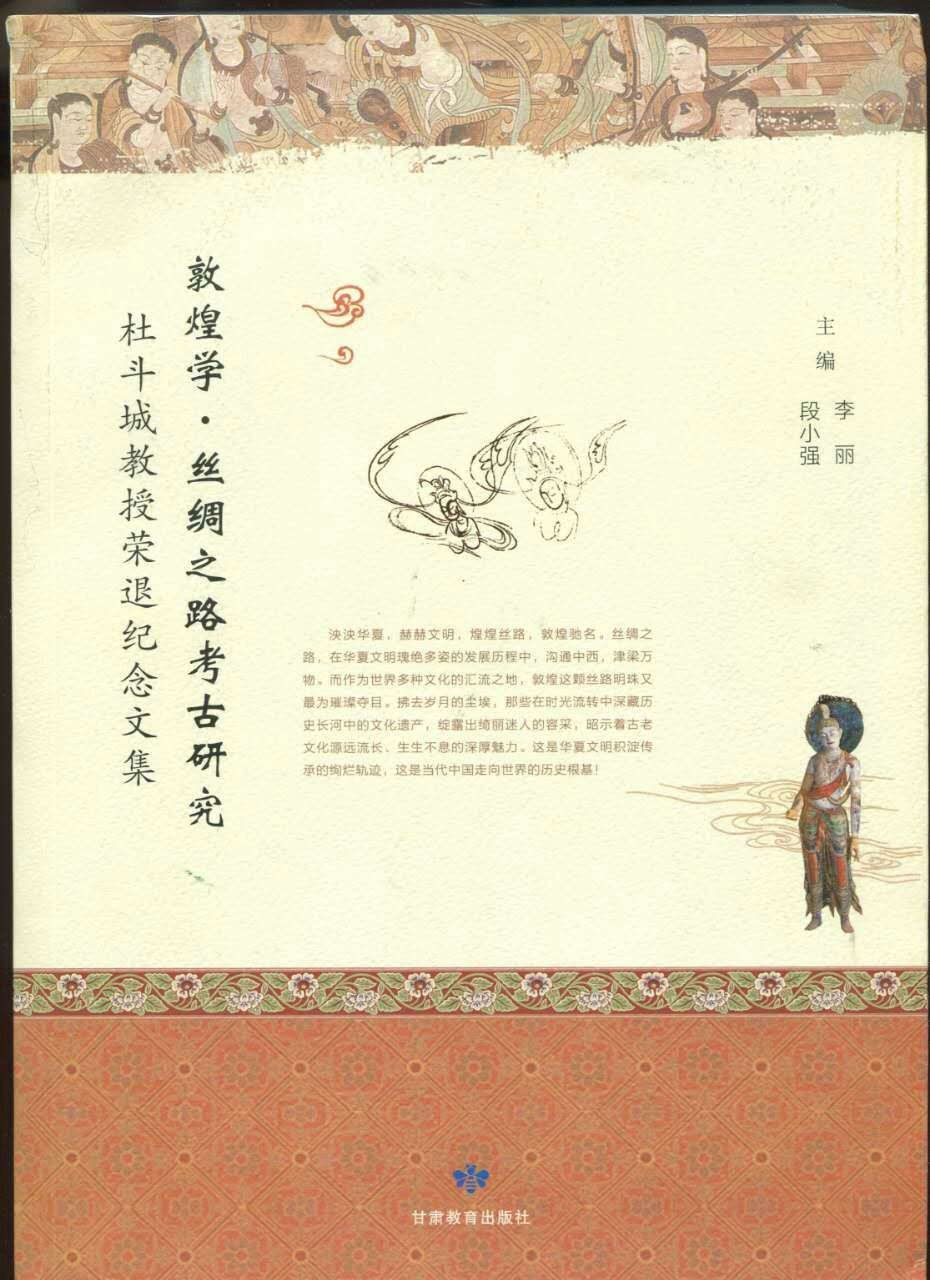 敦煌学·丝绸之路考古研究
杜斗城教授荣退纪念文集
主编
李丽
段小强
泱泱华夏，赫赫文明，煌煌丝路，敦煌驰名。丝绸之
路，在华夏文明瑰绝多姿的发展历程中，沟通中西，津梁万
物。而作为世界多种文化的汇流之地，敦煌这颗丝路明珠又
最为璀璨夺目。拂去岁月的尘埃，那些在时光流转中深藏历
史长河中的文化遗产，绽露出绮丽迷人的容采，昭示着古老
文化源远流长、生生不息的深厚魅力。这是华夏文明积淀传
承的绚烂轨迹，这是当代中国走向世界的历史根基！
甘肃教育出版社